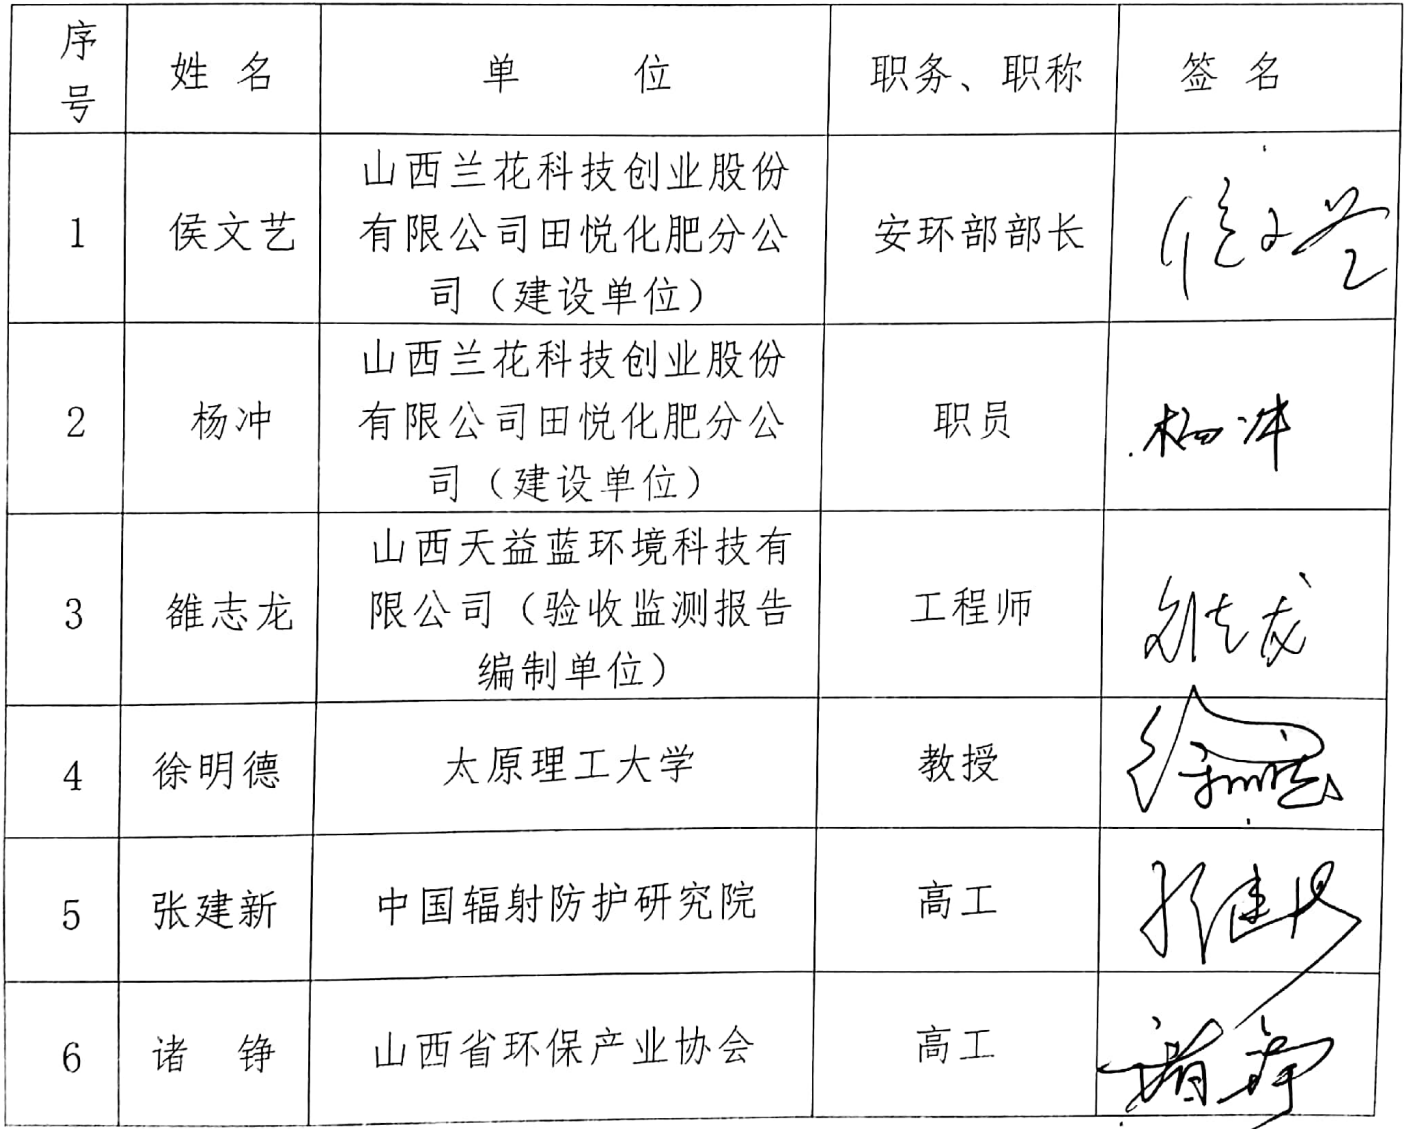 序号
姓 名
单 位
职务、职称
签 名
1
侯文艺
山西兰花科技创业股份
有限公司田悦化肥分公
司（建设单位）
安环部部长
侯文艺
2
杨冲
山西兰花科技创业股份
有限公司田悦化肥分公
司（建设单位）
职员
杨冲
3
雒志龙
山西天益蓝环境科技有
限公司（验收监测报告
编制单位）
工程师
4
徐明德
太原理工大学
教授
徐明德
5
张建新
中国辐射防护研究院
高工
张建新
6
诸 铮
山西省环保产业协会
高工
诸铮